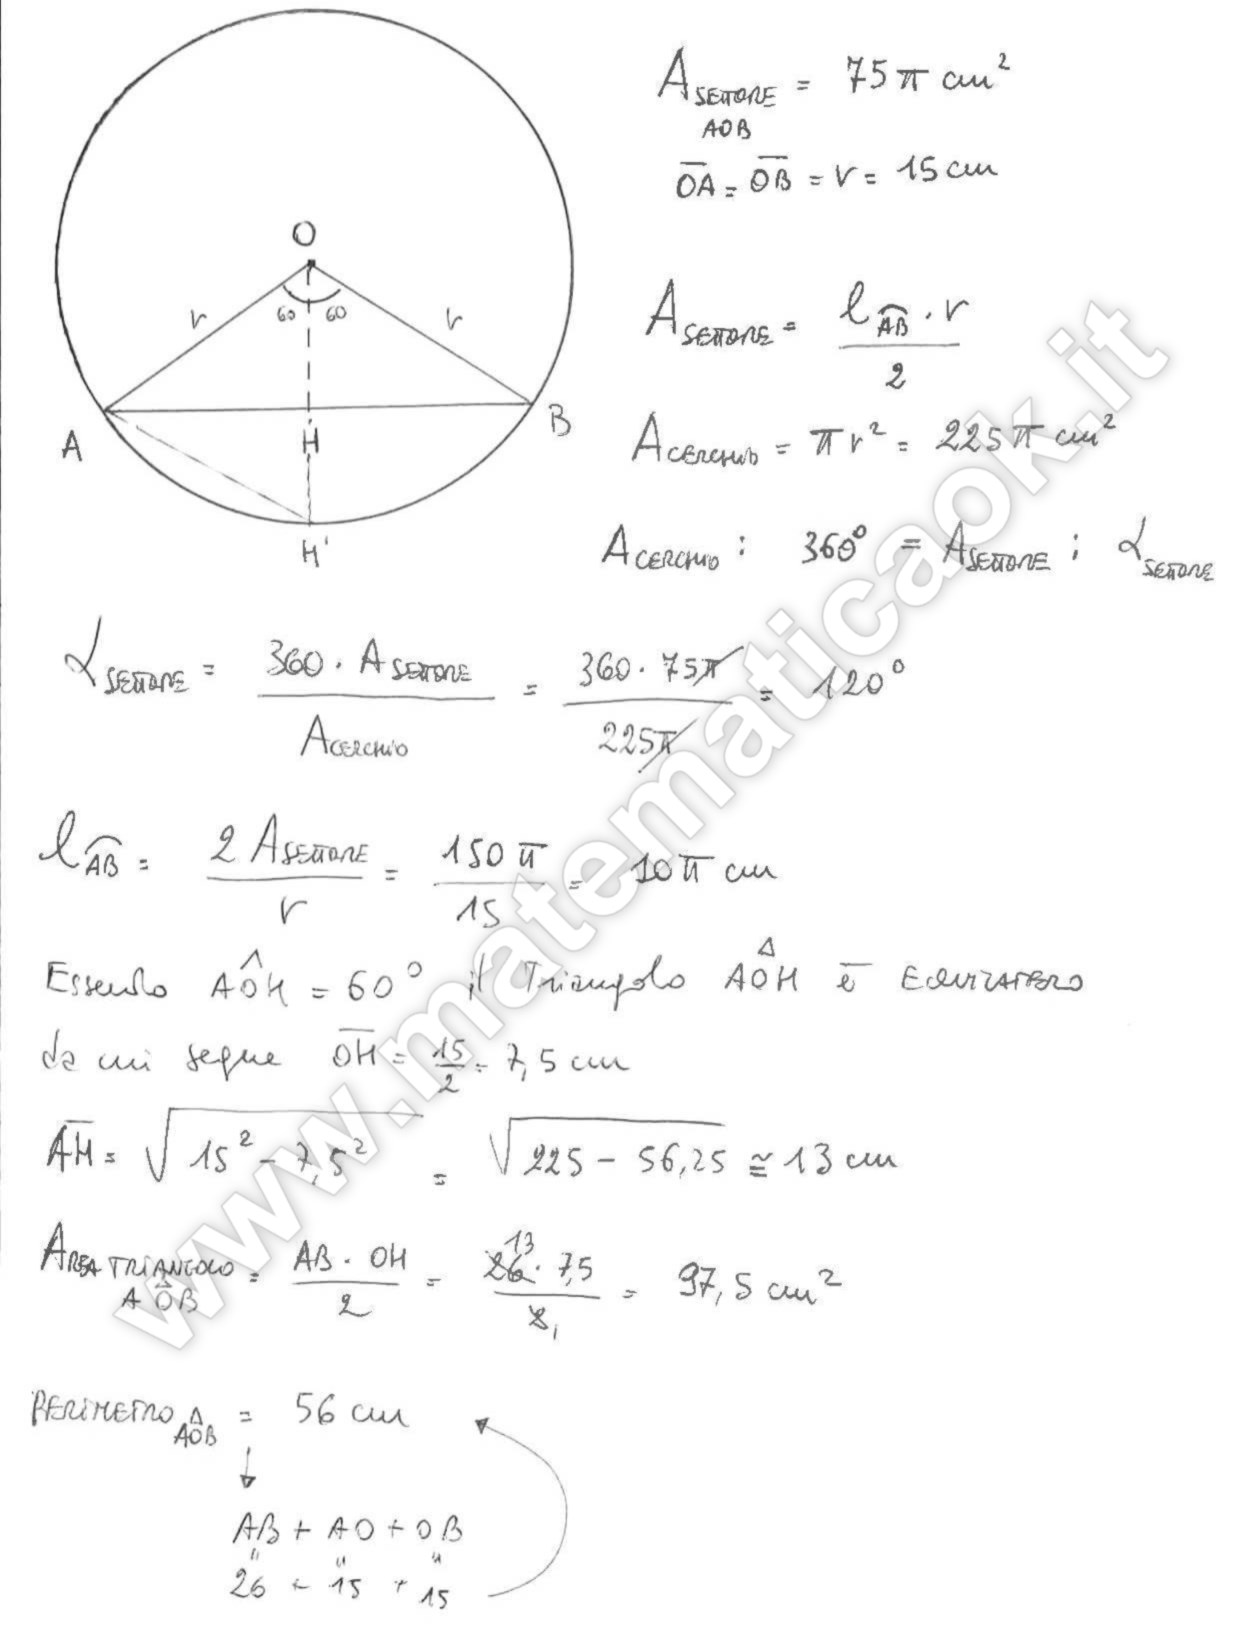 A SETTORE AOB = 75π cm²
OA = OB = r = 15 cm
O
60 60
r r
A SETTORE = l AB · r / 2
A H B
A CERCHIO = π r² = 225π cm²
H'
A CERCHIO : 360° = A SETTORE : α SETTORE
α SETTORE = 360 · A SETTORE / A CERCHIO = 360 · 75π / 225π = 120°
l AB = 2 A SETTORE / r = 150 π / 15 = 10π cm
Essendo AÔH = 60° il Triangolo AOH è EQUILATERO
da cui segue OH = 15/2 = 7,5 cm
AH = √15² - 7,5² = √225 - 56,25 ≅ 13 cm
AREA TRIANGOLO AOB = AB · OH / 2 = 26 13 · 7,5 / 2 1 = 97,5 cm²
PERIMETRO AOB = 56 cm
AB + AO + OB
" " "
26 + 15 + 15
www.matematicaok.it